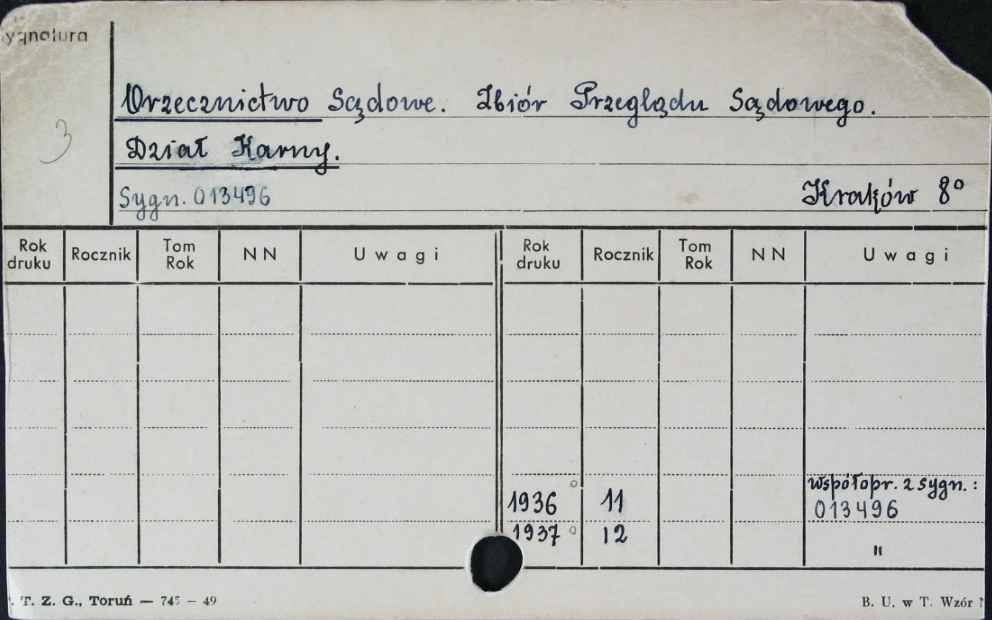 ygnatura
Orzecznictwo Sądowe. Zbiór Przeglądu Sądowego.
3
Dział Karny.
Sygn. 013496 Kraków 8°
Rok druku Rocznik Tom Rok NN Uwagi Rok druku Rocznik Tom Rok NN Uwagi
współopr. z sygn.:
1936 11 013496
1937 12 "
. T. Z. G., Toruń — 745 – 49 B. U. w T. Wzór